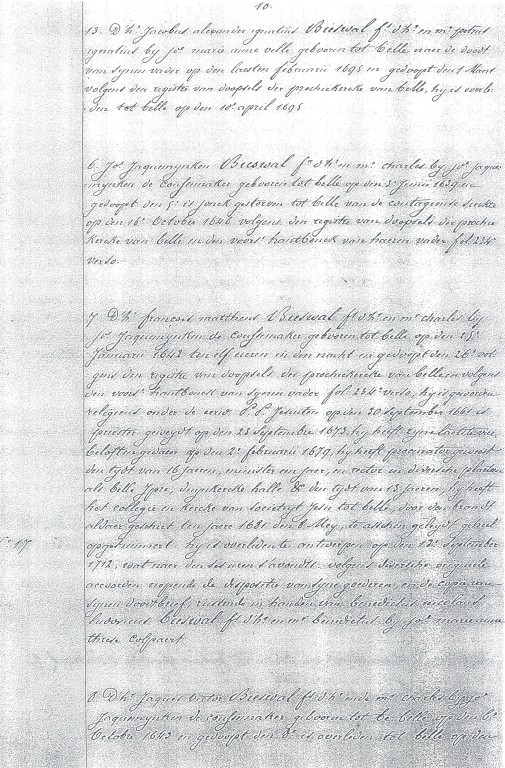 10.
13. Dhr. Jacobus alexander ignatius Bieswal fs dhr. en mr. petrus
ignatius by Jor marie anne velle geboren tot belle naer de doodt
van synen vader op den laesten februarii 1695 en gedoopt den 1 Maert
volgens den register van doopsels der prochiekercke van belle, hy is overle
den tot belle op den 10e april 1695
6. Jor Jaquemynken Bieswal fa dhr. en mr. charles by jor Jaque
mynken de Coussemaker geboren tot belle op den 3e Junii 1639 en
gedoopt den 5e is jonck gestorven tot belle van de contagieuse sieckte
op den 16e October 1646 volgens den register van doopsels der prochie
kercke van belle en den voors. hantbouck van haeren vader fol 234e
verso.
7 Dhr. francois mattheus Bieswal fs dhr. en mr. charles by
jor Jaquemynken de Coussemaker geboren tot belle op den 25e
Januarii 1642 ten elf uren in den nacht en gedoopt den 26e vol
gens den register van doopsels der prochiekercke van belle en volgens
den voors. hantbouck van synen vader fol. 234e verso, hy is geworden
religieus onder de eerw. P.P. Jesuiten op den 30 september 1661 is
priester gewydt op den 23 Septembre 1673, hy heeft syne laetste
beloften gedaen op den 2e februarii 1679, hy heeft procurator geweest
den tydt van 16 jaeren, minister een jaer, en rector in diversche plaetsen
als belle Ypre, duynkercke halle &c den tydt van 13 jaeren, hy heeft
het collegie en kercke van societeyt Jesu tot belle, door den brandt
aldaer geschiet ten jaere 1681 den 8 Mey, te asschen geleydt, geheel
opgetimmert. hy is overleden te antwerpen op den 12e September
1712, wat naer den ses uren s'avondts. volgens diversche originele
accoorden roepende de dispositie van syne goederen en de copie van
synen dootbrief, rustende in handen van benedictus
ludovicus Bieswal fs dhr. en mr. benedictus by jor. marie anne
therese Colpaert.
fo 107
8. Dhr. Jaques victor Bieswal fs dhr. ende mr. charles by jor
Jaquemynken de Coussemaker geboren tot belle op den 6e
Octobre 1643 en gedoopt den 8e is overleden tot belle op den